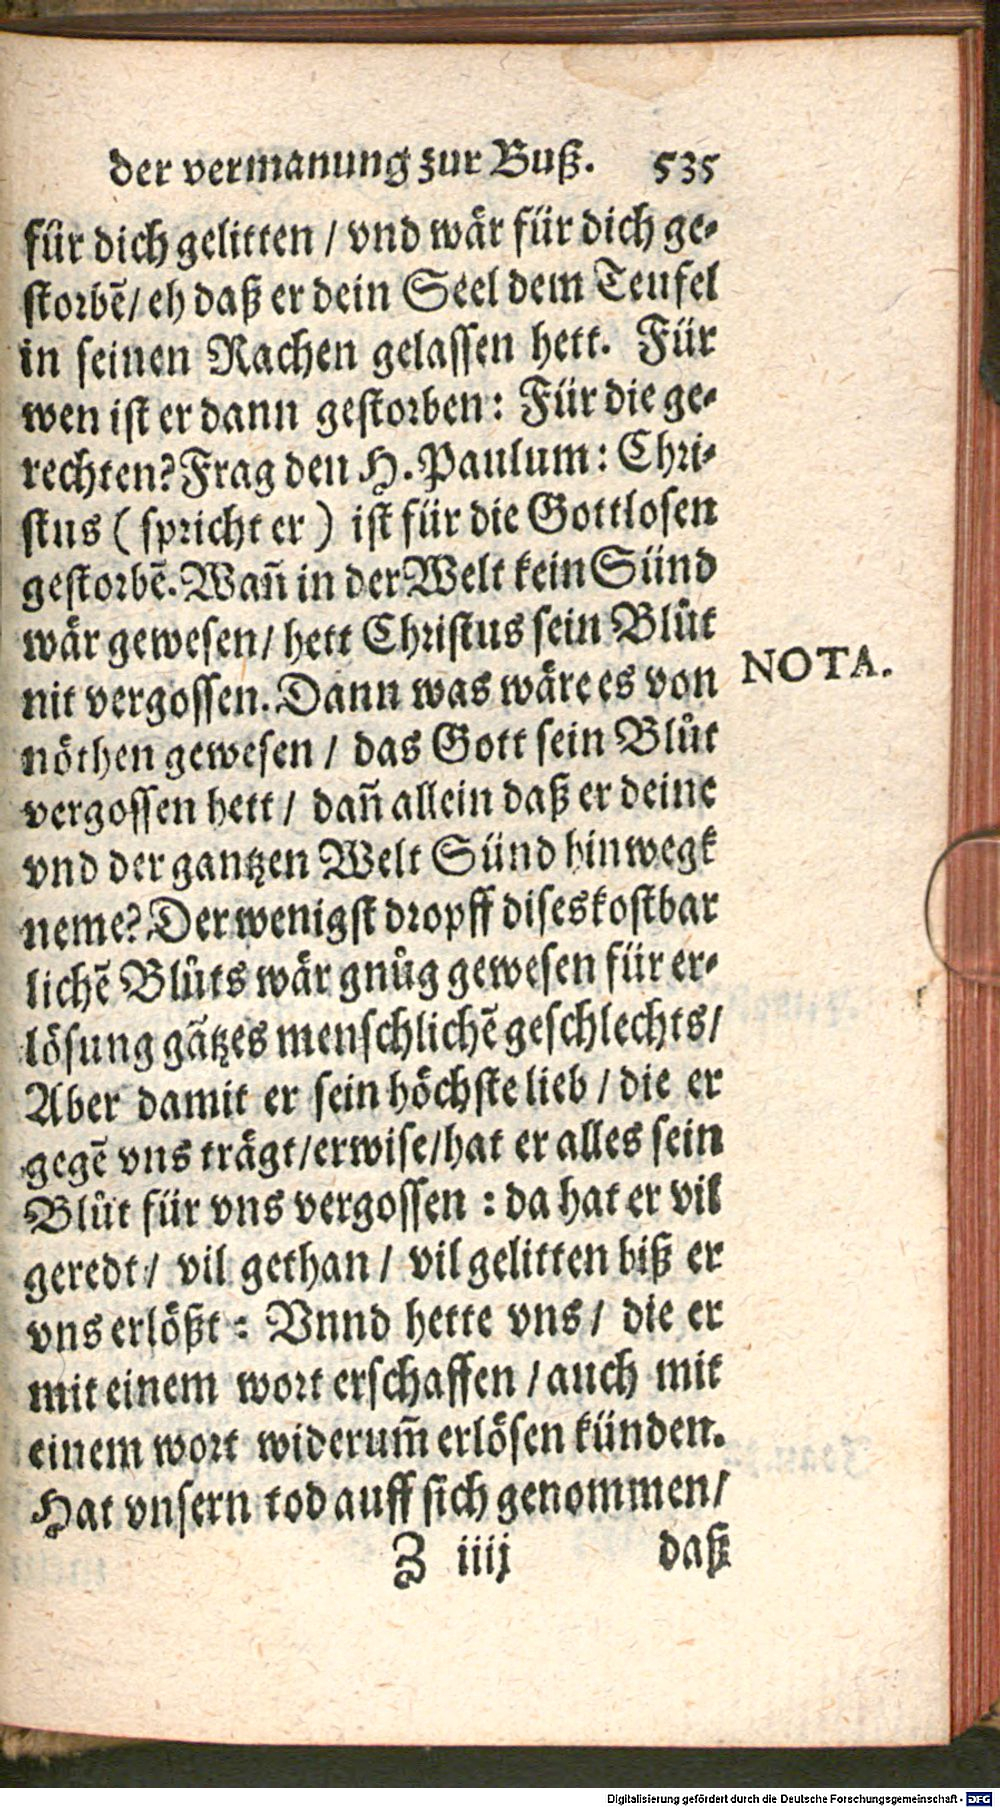 der vermanung zur Buß. 535
für dich gelitten / vnd wär für dich ge-
storbẽ / eh daß er dein Seel dem Teufel
in seinen Rachen gelassen hett. Für
wen ist er dann gestorben: Für die ge-
rechten? Frag den H. Paulum: Chri-
stus ( spricht er ) ist für die Gottlosen
gestorbẽ. Wañ in der Welt kein Sünd
wär gewesen / hett Christus sein Blůt
nit vergossen. Dann was wäre es von
nöthen gewesen / das Gott sein Blůt
vergossen hett / dañ allein daß er deine
vnd der gantzen Welt Sünd hinwegk
neme? Der wenigst dropff dises kostbar
lichẽ Blůts wär gnůg gewesen für er-
lösung gãtzes menschlichẽ geschlechts /
Aber damit er sein höchste lieb / die er
gegẽ vns trägt / erwise / hat er alles sein
Blůt für vns vergossen : da hat er vil
geredt / vil gethan / vil gelitten biß er
vns erlößt : Vnnd hette vns / die er
mit einem wort erschaffen / auch mit
einem wort widerum̃ erlösen künden.
Hat vnsern tod auff sich genommen /
Z iiij daß
NOTA.
Digitalisierung gefördert durch die Deutsche Forschungsgemeinschaft - DFG